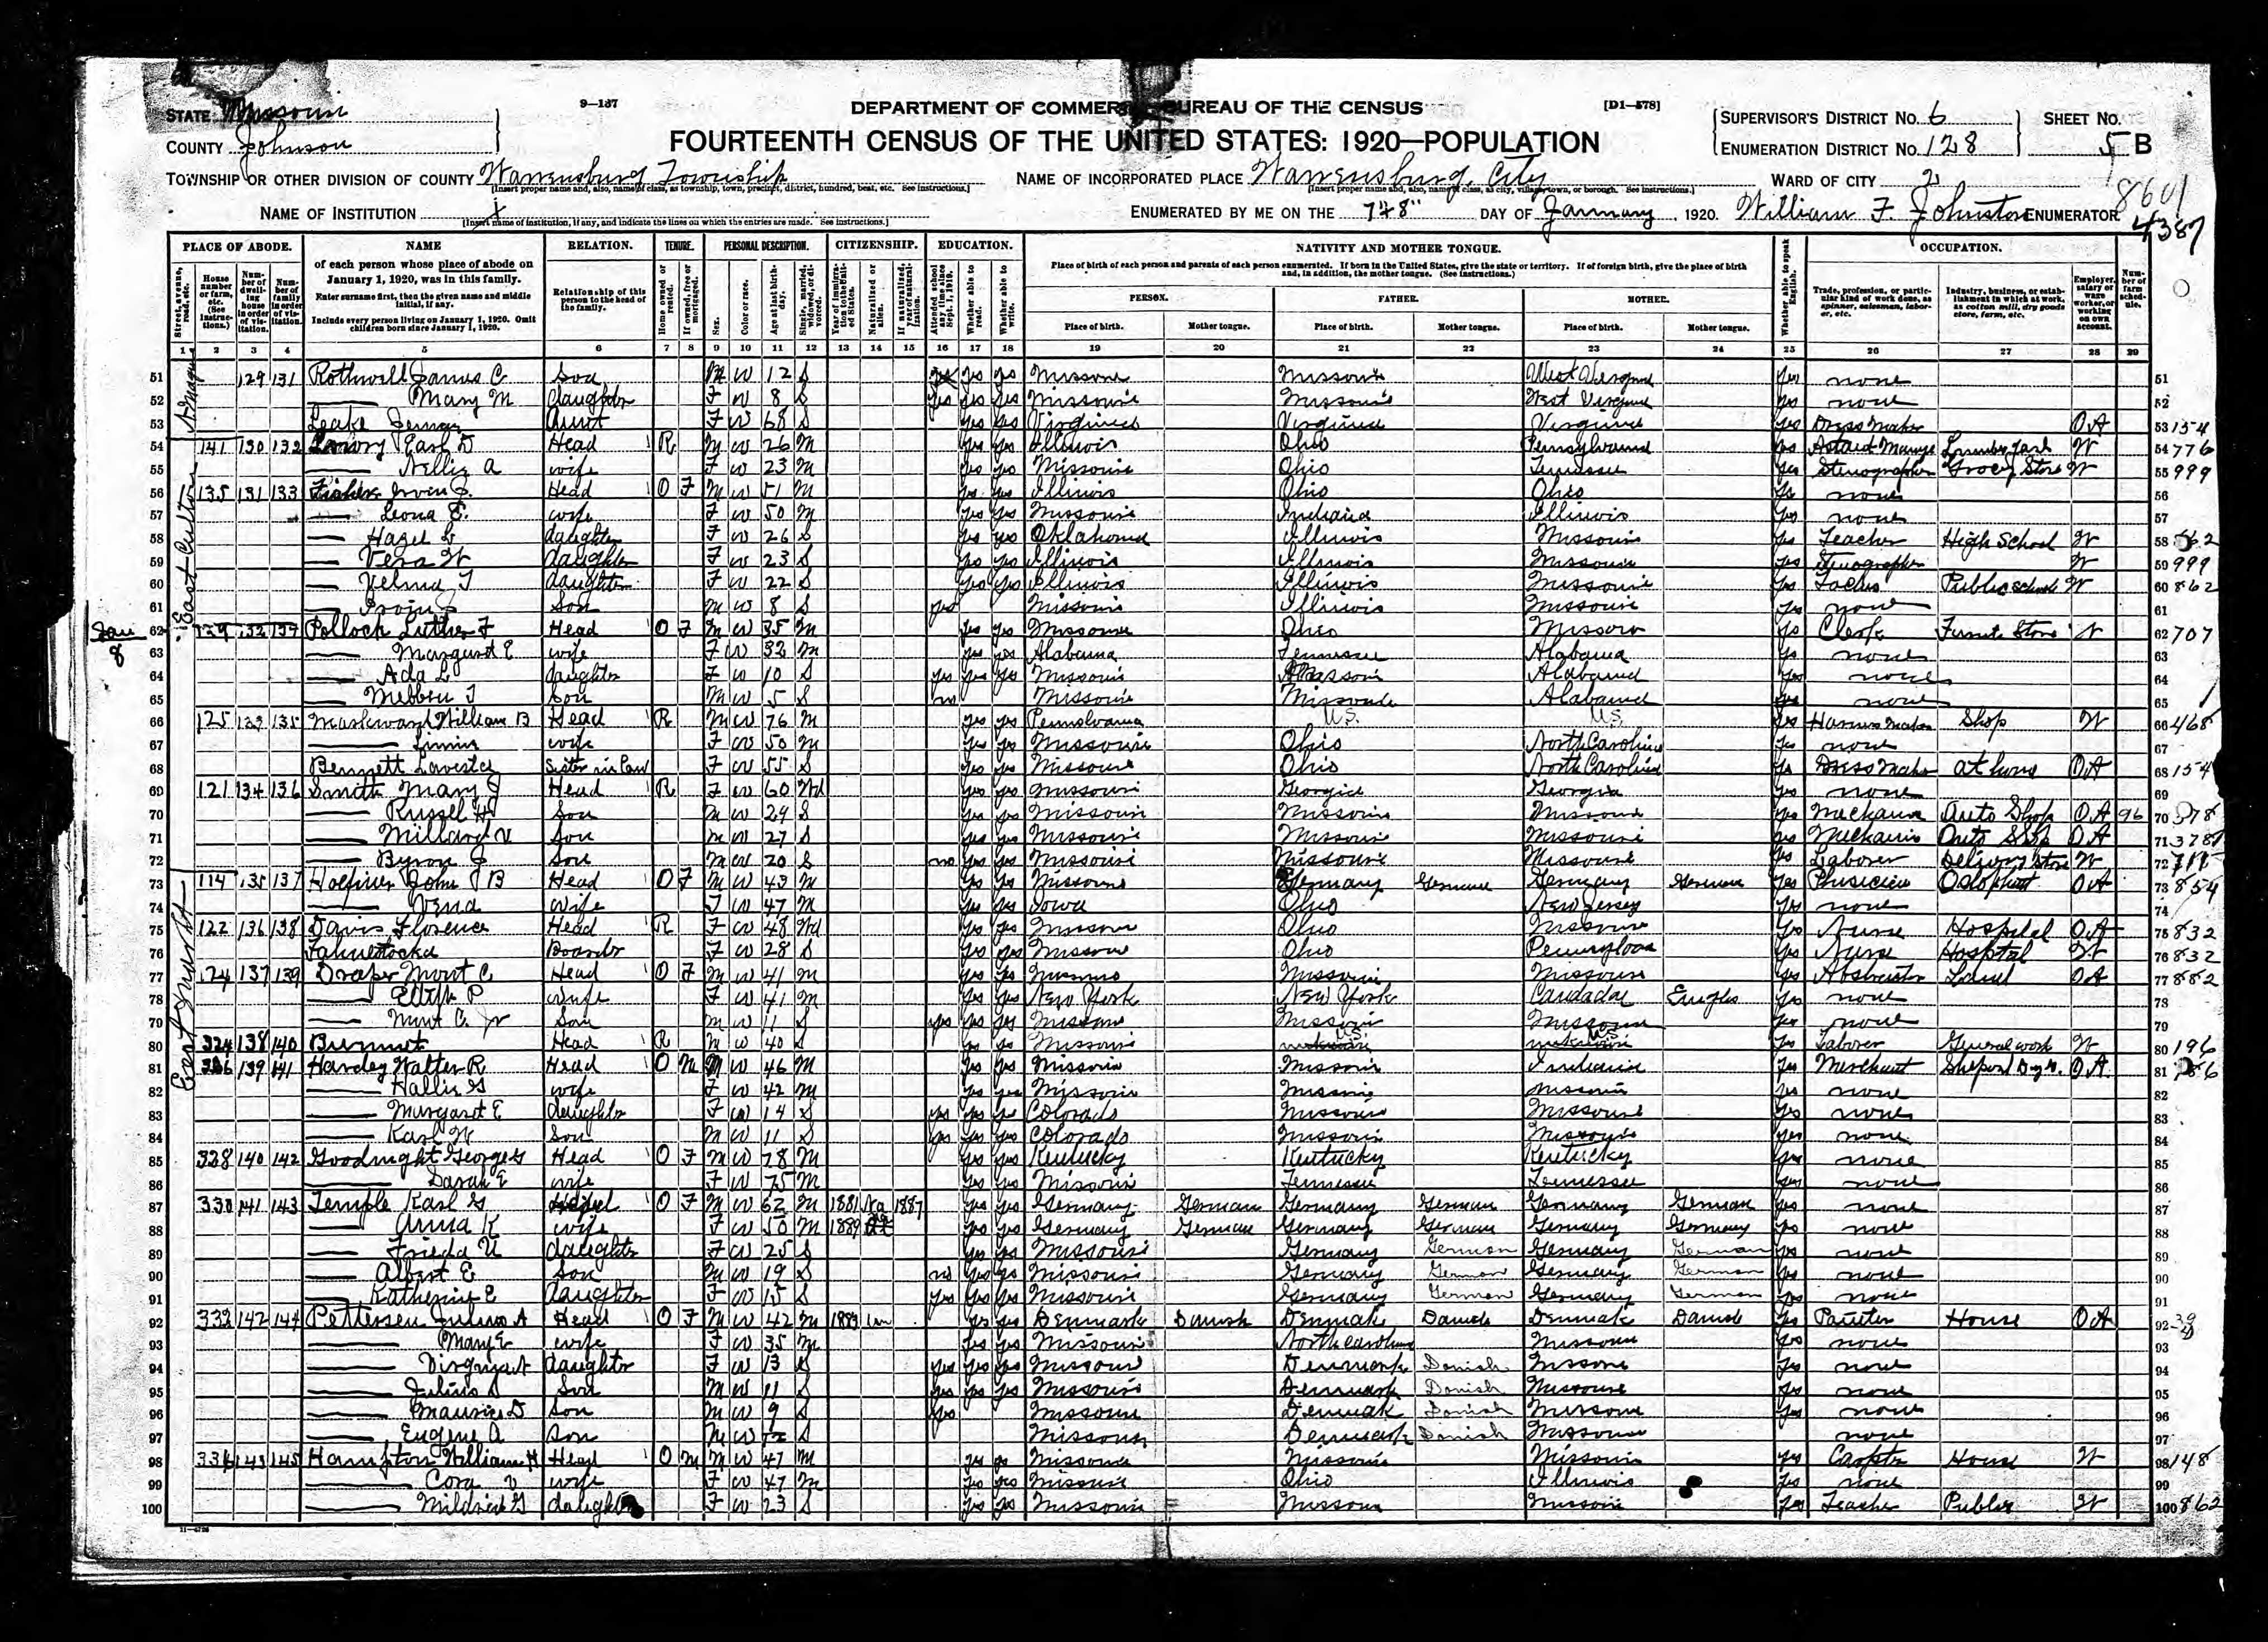 9—137
DEPARTMENT OF COMMERCE—BUREAU OF THE CENSUS
[D1—578]
STATE Missouri
COUNTY Johnson
FOURTEENTH CENSUS OF THE UNITED STATES: 1920—POPULATION
SUPERVISOR'S DISTRICT No. 6
ENUMERATION DISTRICT No. 128
SHEET No. 5 B
TOWNSHIP OR OTHER DIVISION OF COUNTY Warrensburg Township
NAME OF INCORPORATED PLACE Warrensburg City
WARD OF CITY 2
8601
NAME OF INSTITUTION X
[Insert name of institution, if any, and indicate the lines on which the entries are made. See instructions.]
ENUMERATED BY ME ON THE 7 & 8" DAY OF January, 1920. William F. Johnston ENUMERATOR
4387
PLACE OF ABODE. NAME RELATION. TENURE. PERSONAL DESCRIPTION. CITIZENSHIP. EDUCATION. NATIVITY AND MOTHER TONGUE. OCCUPATION.
of each person whose place of abode on January 1, 1920, was in this family.
Enter surname first, then the given name and middle initial, if any.
Include every person living on January 1, 1920. Omit children born since January 1, 1920.
Relationship of this person to the head of the family.
Place of birth of each person and parents of each person enumerated. If born in the United States, give the state or territory. If of foreign birth, give the place of birth and, in addition, the mother tongue. (See instructions.)
PERSON. FATHER. MOTHER.
Place of birth. Mother tongue. Place of birth. Mother tongue. Place of birth. Mother tongue.
1 2 3 4 5 6 7 8 9 10 11 12 13 14 15 16 17 18 19 20 21 22 23 24 25 26 27 28 29
51 129 131 Rothwell James C Son M W 12 S yes yes yes Missouri Missouri West Virginia yes none 51
52 Mary M daughter F W 8 S yes yes yes Missouri Missouri West Virginia yes none 52
53 Aunt F W 68 S yes yes Virginia Virginia Virginia yes Dress Maker O A 53 154
54 141 130 132 Earl D Head R M W 26 M yes yes Illinois Ohio Pennsylvania yes W 54 776
55 Nellie A wife F W 23 M yes yes Missouri Ohio Tennessee yes Stenographer Grocy Store W 55 999
56 135 131 133 Fisher Irvin J. Head O F M W 51 M yes yes Illinois Ohio Ohio yes none 56
57 Leona E. wife F W 50 M yes yes Missouri Indiana Illinois yes none 57
58 Hazel L daughter F W 26 S yes yes Oklahoma Illinois Missouri yes Teacher High School W 58
59 Vera W daughter F W 23 S yes yes Illinois Illinois Missouri yes Stenographer W 59 999
60 Velma T daughter F W 22 S yes yes Illinois Illinois Missouri yes Public School W 60 862
61 Son M W 8 S yes Missouri Illinois Missouri yes none 61
62 129 132 134 Pollock Luther F Head O F M W 35 M yes yes Missouri Ohio Missouri yes Clerk Store W 62 707
63 Margaret E wife F W 32 M yes yes Alabama Tennessee Alabama yes none 63
64 Ada L daughter F W 10 S yes yes yes Missouri Missouri Alabama yes none 64
65 Son M W 5 S no Missouri Missouri Alabama yes none 65
66 125 133 135 William B Head R M W 76 M yes yes Pennsylvania U.S. U.S. yes Harness Maker Shop W 66 468
67 wife F W 50 M yes yes Missouri Ohio North Carolina yes none 67
68 Bennett Lovesta Sister in Law F W 55 S yes yes Missouri Ohio North Carolina yes Dress Maker at home O A 68 154
69 121 134 136 Smith Mary J Head R F W 60 Wd yes yes Missouri Georgia Georgia yes none 69
70 Russel H Son M W 29 S yes yes Missouri Missouri Missouri yes Mechanic Auto Shop O A 96 70
71 Millard V Son M W 27 S yes yes Missouri Missouri Missouri yes Mechanic Auto Shop O A 71
72 Byron J Son M W 20 S no yes yes Missouri Missouri Missouri yes Laborer Delivery Store W 72
73 114 135 137 John B Head O F M W 43 M yes yes Missouri Germany German Germany German yes Physician Osteopath O A 73 854
74 wife F W 47 M yes yes Iowa Ohio New Jersey yes none 74
75 122 136 138 Davis Florence Head R F W 48 Wd yes yes Missouri Ohio Missouri yes Nurse Hospital O A 75 832
76 Boarder F W 28 S yes yes Missouri Ohio Pennsylvania yes Nurse Hospital W 76 832
77 124 137 139 Draper Mont C Head O F M W 41 M yes yes Missouri Missouri Missouri yes Abstractor Land O A 77 882
78 Edith P wife F W 41 M yes yes New York New York yes none 78
79 Mont C. Jr Son M W 11 S yes yes yes Missouri Missouri Missouri yes none 79
80 324 138 140 Head R M W 40 S Missouri yes Laborer General work W 80 196
81 326 139 141 Walter R Head O M M W 46 M yes yes Missouri Missouri Indiana yes Merchant O A 81
82 Hallie G wife F W 42 M yes yes Missouri Missouri Missouri yes none 82
83 Margaret E daughter F W 14 S yes yes yes Colorado Missouri Missouri yes none 83
84 Karl W Son M W 11 S yes yes yes Colorado Missouri Missouri yes none 84
85 328 140 142 Goodnight George G Head O F M W 78 M yes yes Kentucky Kentucky Kentucky yes none 85
86 Sarah E wife F W 75 M yes yes Missouri Tennessee Tennessee yes none 86
87 330 141 143 Temple Karl G Head O F M W 62 M 1881 Na 1887 yes yes Germany German Germany German Germany German yes none 87
88 Anna K wife F W 50 M 1889 yes yes Germany German Germany German Germany Germany yes none 88
89 Frieda U daughter F W 25 S yes yes Missouri Germany German Germany German yes none 89
90 Albert E Son M W 19 S no yes yes Missouri Germany German Germany German yes none 90
91 Katherine E daughter F W 15 S yes yes yes Missouri Germany German Germany German yes none 91
92 332 142 144 Pettersen Julius A Head O F M W 42 M yes yes Denmark Danish Denmark Danish Denmark Danish yes Painter House O A 92
93 Mary E wife F W 35 M yes yes Missouri North Carolina Missouri yes none 93
94 daughter F W 13 S yes yes yes Missouri Denmark Danish Missouri yes none 94
95 Julius Son M W 11 S yes yes yes Missouri Denmark Danish Missouri yes none 95
96 Maurice D Son M W 9 S yes Missouri Denmark Danish Missouri yes none 96
97 Eugene A Son M W S Missouri Denmark Danish Missouri none 97
98 334 143 145 Hampton William H Head O M M W 47 M yes yes Missouri Missouri Missouri yes House W 98 148
99 Cora V wife F W 47 M yes yes Missouri Ohio Illinois yes none 99
100 Mildred G daughter F W 23 S yes yes Missouri Missouri Missouri yes Teacher Public W 100 862